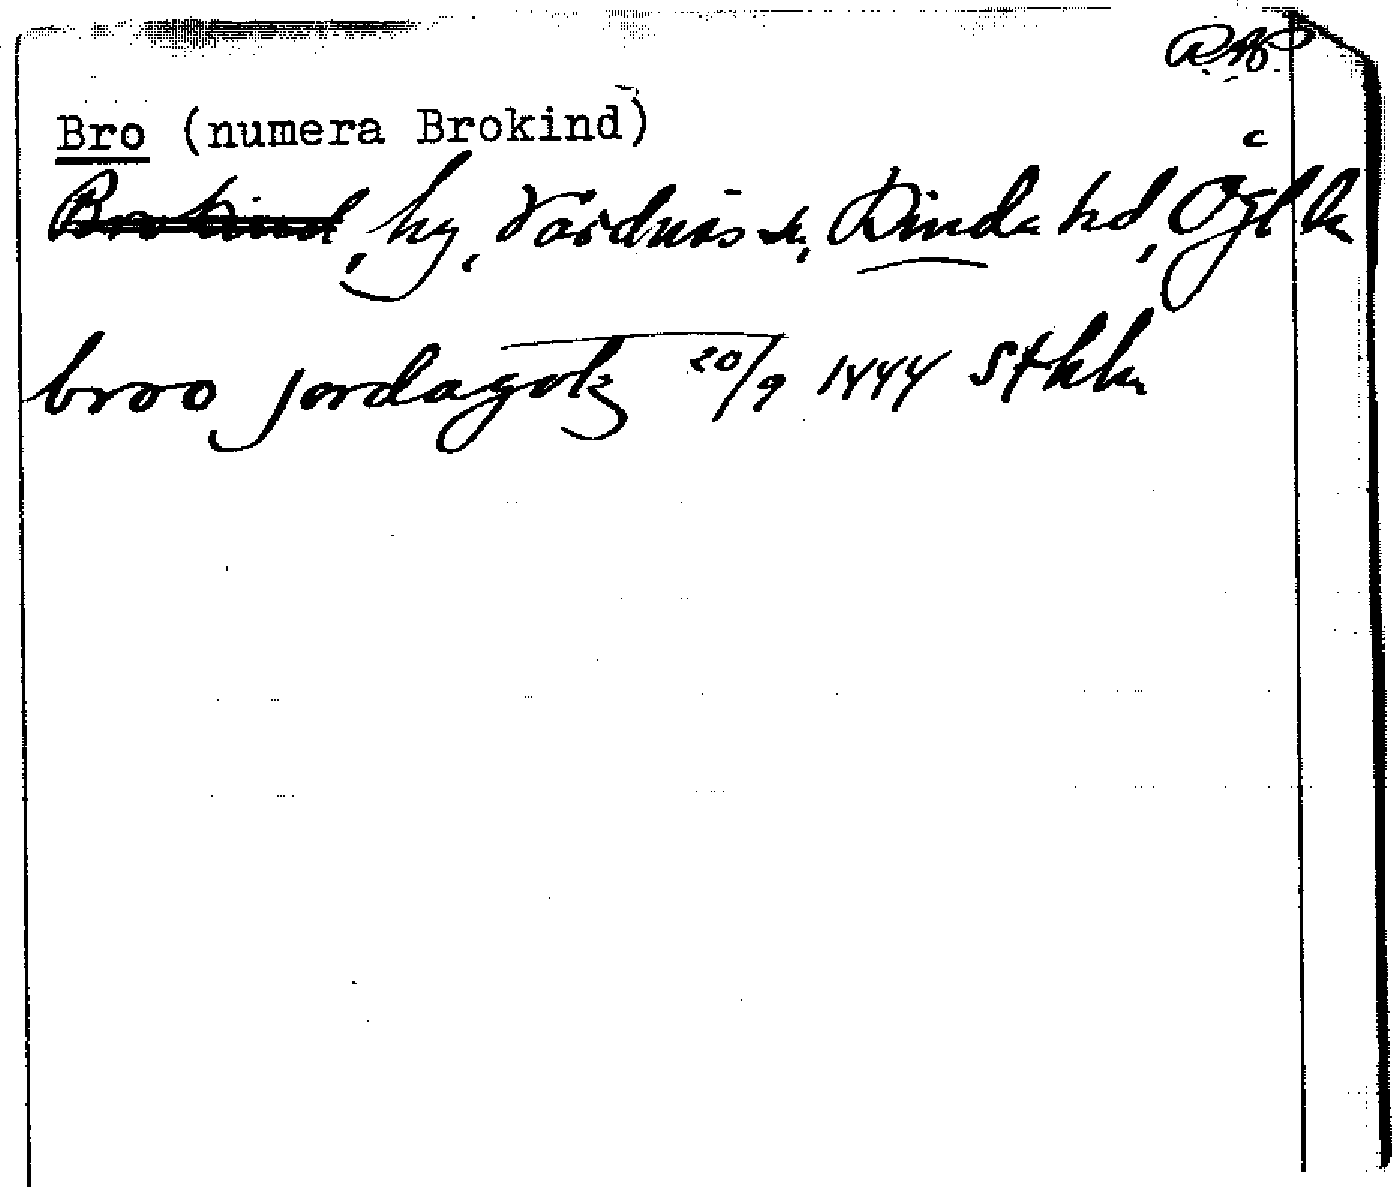 Bro (numera Brokind)
Brokind, by, Vårdnäs sn, Kinda hd, Ögl ln
broo jordagotz 20/9 1444 Sthlm